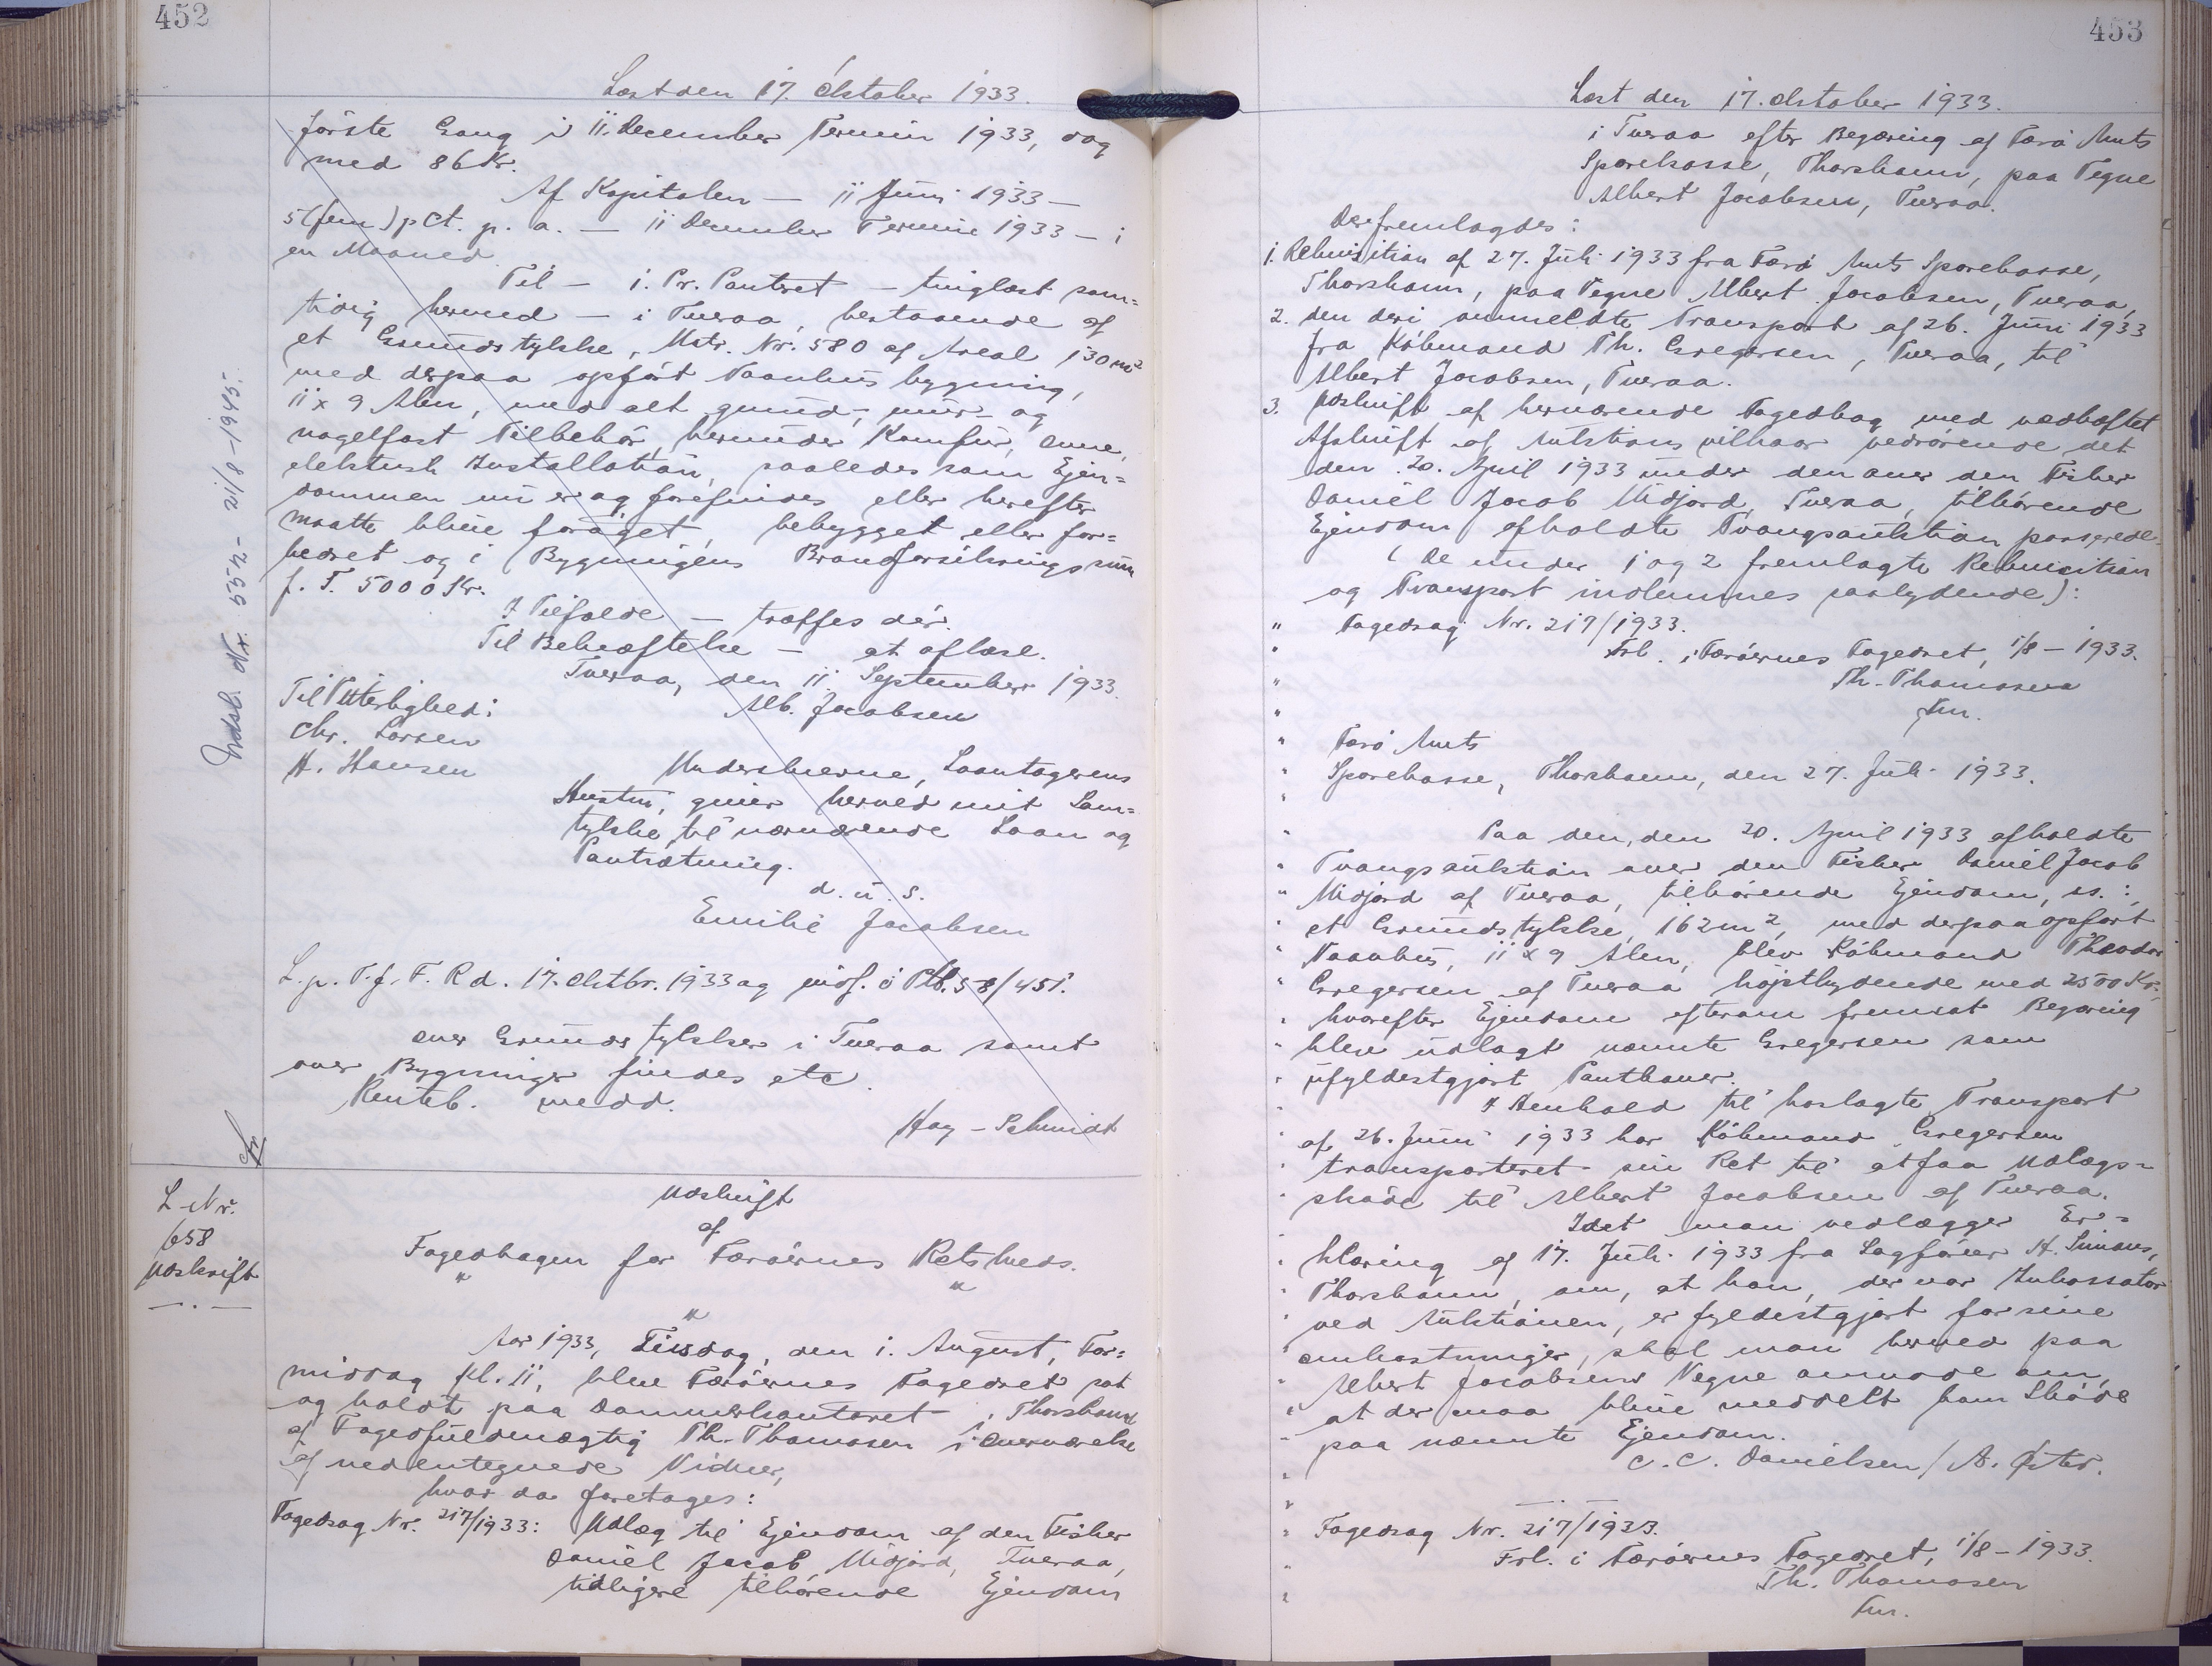 452
Læst den 17. Oktober 1933.
første Gang i 11. December Termin 1933, dog
med 86 Kr.
Af Kapitalen — 11 Juni 1933 —
5 (fem) pCt. p. a. — 11 December Termin 1933 — i
en Maaned
Til — 1. Pr. Panteret — tinglæst sam=
tidig hermed — i Tveraa, bestaaende af
et Grundstykke, Matr. Nr. 580 af Areal 130 m²
med derpaa opført Vaanhusbygning,
11 x 9 Alen, med alt grund-, mur- og
nagelfast Tilbehør, herunder Komfur, Ovne,
elektrisk Installation, saaledes som Ejen=
dommen nu er og forefindes eller herefter
maatte blive forøget, bebygget eller for=
bedret og i Bygningens Brandforsikringssum
f. T. 5000 Kr.
I Tilfælde — træffes dér.
Til Bekræftelse — at aflæse.
Tveraa, den 11 September 1933.
Til Vitterlighed: Alb. Jacobsen
Chr. Larsen
H. Hansen
Underskrevne, Laantagerens
Hustru, giver herved mit Sam=
tykke til nærværende Laan og
Pantsætning.
d. u. s.
Emilie Jacobsen
L. p. T. f. F. R d. 17. Oktbr. 1933 og indf. i Ptb. 58/451.
over Grundstykker i Tveraa samt
over Bygninger findes etc.
Renteb. medd.
Hay-Schmidt
Indsb. Nr. 552 - 21/8-1945.
L. Nr.
658
Udskrift
— . —
Udskrift
af
Fogedbogen for Færøernes Retskreds.
" " "
Aar 1933, Tirsdag, den 1. August, For=
middag Kl. 11, blev Færøernes Fogedret sat
og holdt paa Dommerkontoret i Thorshavn
af Fogedfuldmægtig Th. Thomasen i Overværelse
af nedentegnede Vidner,
hvor da foretages:
Fogedsag Nr. 217/1933: Udlæg til Ejendom af den Fisker
Daniel Jacob Midjord, Tveraa,
tidligere tilhørende Ejendom
453
Læst den 17. Oktober 1933.
i Tveraa efter Begæring af Færø Amts
Sparekasse, Thorshavn, paa Vegne
Albert Jacobsen, Tveraa.
Der fremlagdes:
1. Rekvisition af 27. Juli 1933 fra Færø Amts Sparekasse,
Thorshavn, paa Vegne Albert Jacobsen, Tveraa,
2. den deri anmeldte Transport af 26. Juni 1933
fra Købmand Th. Gregersen, Tveraa, til
Albert Jacobsen, Tveraa.
3. Udskrift af herværende Fogedbog med vedhæftet
Afskrift af Auktionsvilkaar vedrørende det
den 20. April 1933 under den over den Fisker
Daniel Jacob Midjord, Tveraa, tilhørende
Ejendom afholdte Tvangsauktion passerede.
(De under 1 og 2 fremlagte Rekvisition
og Transport indlemmes saalydende):
" Fogedsag Nr. 217/1933.
" Frl. i Færøernes Fogedret, 1/8 - 1933.
" Th. Thomasen
" fm.
" Færø Amts
" Sparekasse, Thorshavn, den 27. Juli 1933.
" Paa den, den 20. April 1933 afholdte
" Tvangsauktion over den Fisker Daniel Jacob
" Midjord af Tveraa, tilhørende Ejendom, ss.:
" et Grundstykke, 162 m², med derpaa opført
" Vaanhus, 11 x 9 Alen, blev Købmand Theodor
" Gregersen af Tveraa højstbydende med 2500 Kr.,
" hvorefter Ejendom efterom fremsat Begæring
" blev udlagt nævnte Gregersen som
" ufyldestgjort Panthaver.
" I Henhold til hoslagte Transport
" af 26. Juni 1933 har Købmand Gregersen
" transporteret sin Ret til at faa Udlægs=
" skøde til Albert Jacobsen af Tveraa.
" Idet man vedlægger Er=
" klæring af 17. Juli 1933 fra Sagfører H. Simons,
" Thorshavn, om, at han, der var Inkassator
" ved Auktionen, er fyldestgjort for sine
" Omkostninger, skal man herved paa
" Albert Jacobsens Vegne anmode om,
" at der maa blive meddelt ham Skøde
" paa nævnte Ejendom.
" C. C. Danielsen / A. Øster.
" — . —
" Fogedsag Nr. 217/1933.
" Frl. i Færøernes Fogedret, 1/8 - 1933.
" Th. Thomasen
" fm.